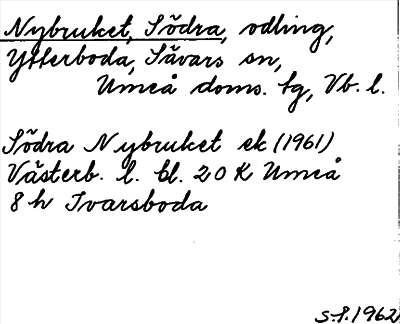 Nybruket, Södra, odling,
Ytterboda, Sävars sn,
Umeå doms. tg, Vb. l.
Södra Nybruket ek (1961)
Västerb. l. bl. 20 K Umeå
8 h Ivarsboda
S.S. 1962